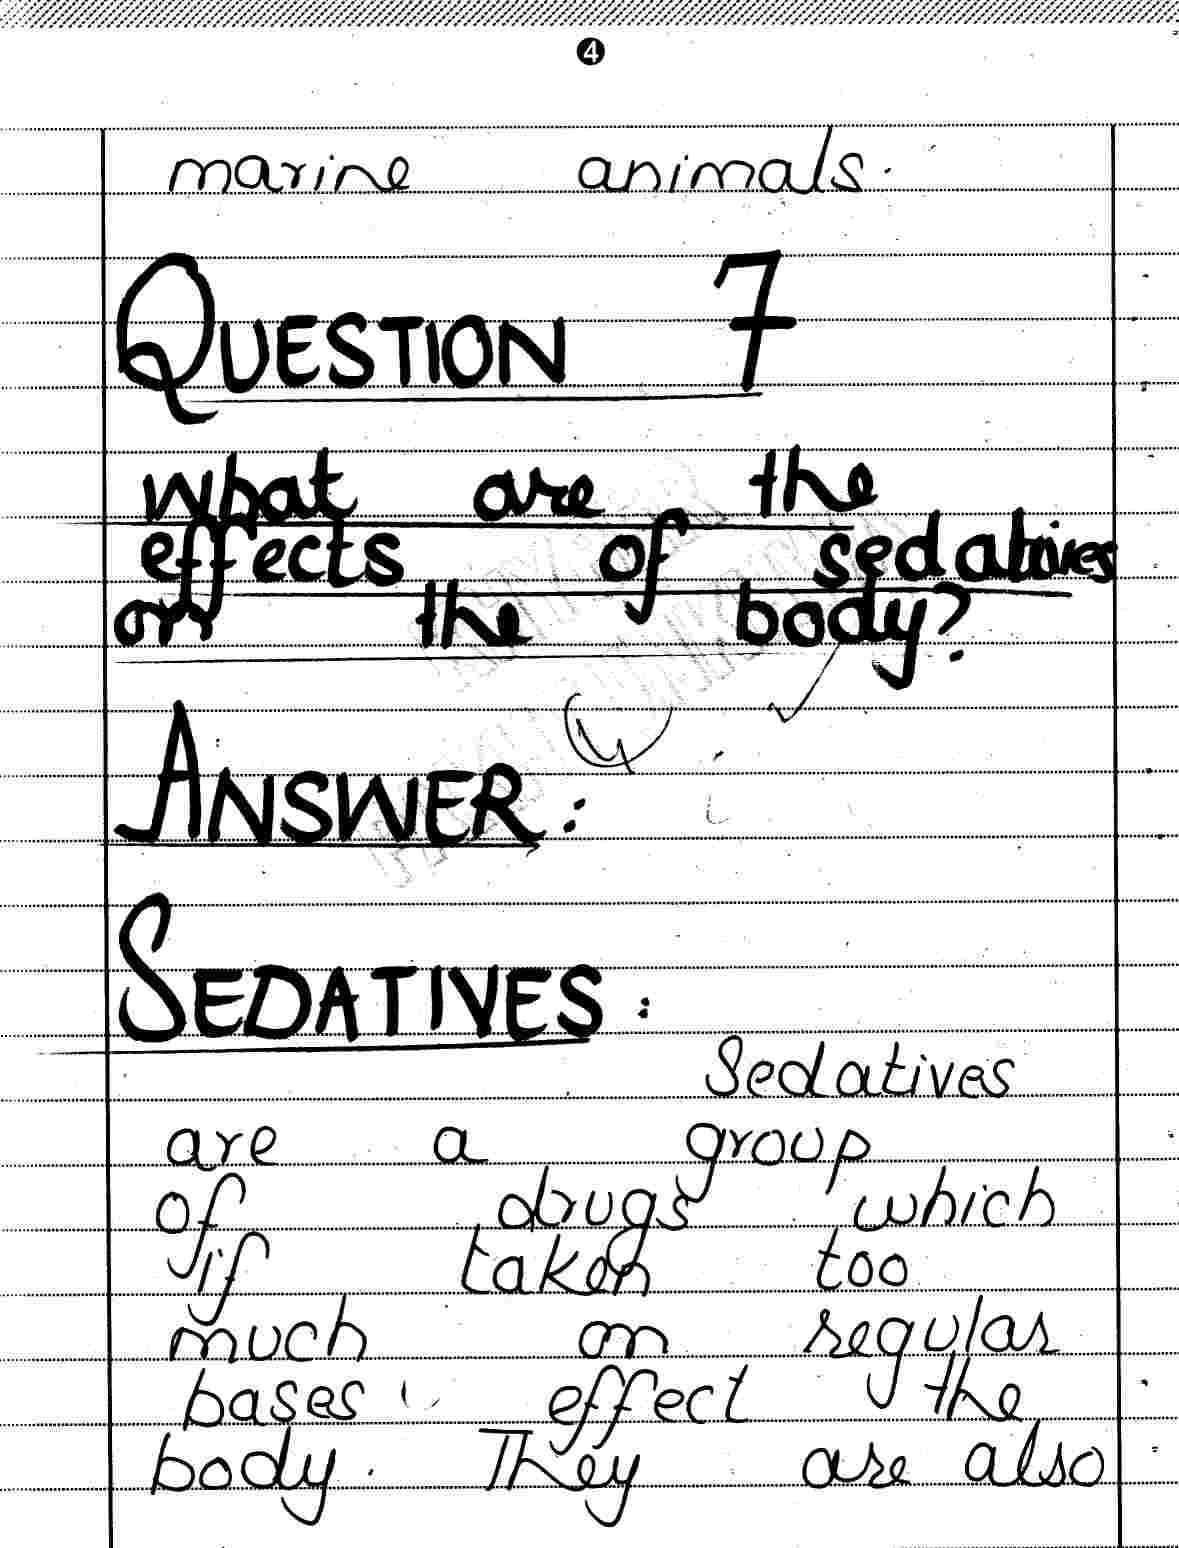 4
marine animals.
QUESTION 7
What are the
effects of sedatives
on the body?
ANSWER:
SEDATIVES:
Sedatives
are a group
of drugs which
if taken too
much on regular
bases effect the
body. They are also